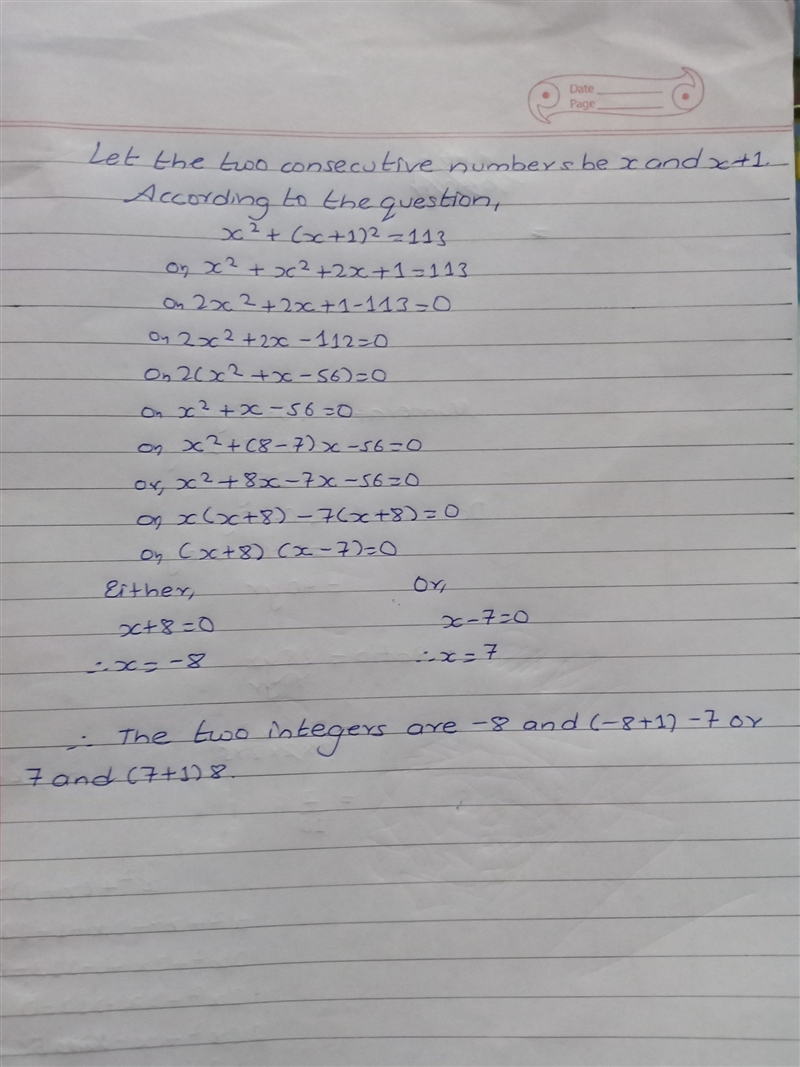 Date
Page
Let the two consecutive numbers be x and x+1.
According to the question,
x² + (x+1)² = 113
or, x² + x² + 2x + 1 = 113
or, 2x² + 2x + 1 - 113 = 0
or, 2x² + 2x - 112 = 0
or, 2(x² + x - 56) = 0
or, x² + x - 56 = 0
or, x² + (8-7)x - 56 = 0
or, x² + 8x - 7x - 56 = 0
or, x(x+8) - 7(x+8) = 0
or, (x+8) (x-7) = 0
Either, Or,
x+8=0 x-7=0
∴x = -8 ∴x = 7
∴ The two integers are -8 and (-8+1) -7 or
7 and (7+1) 8.